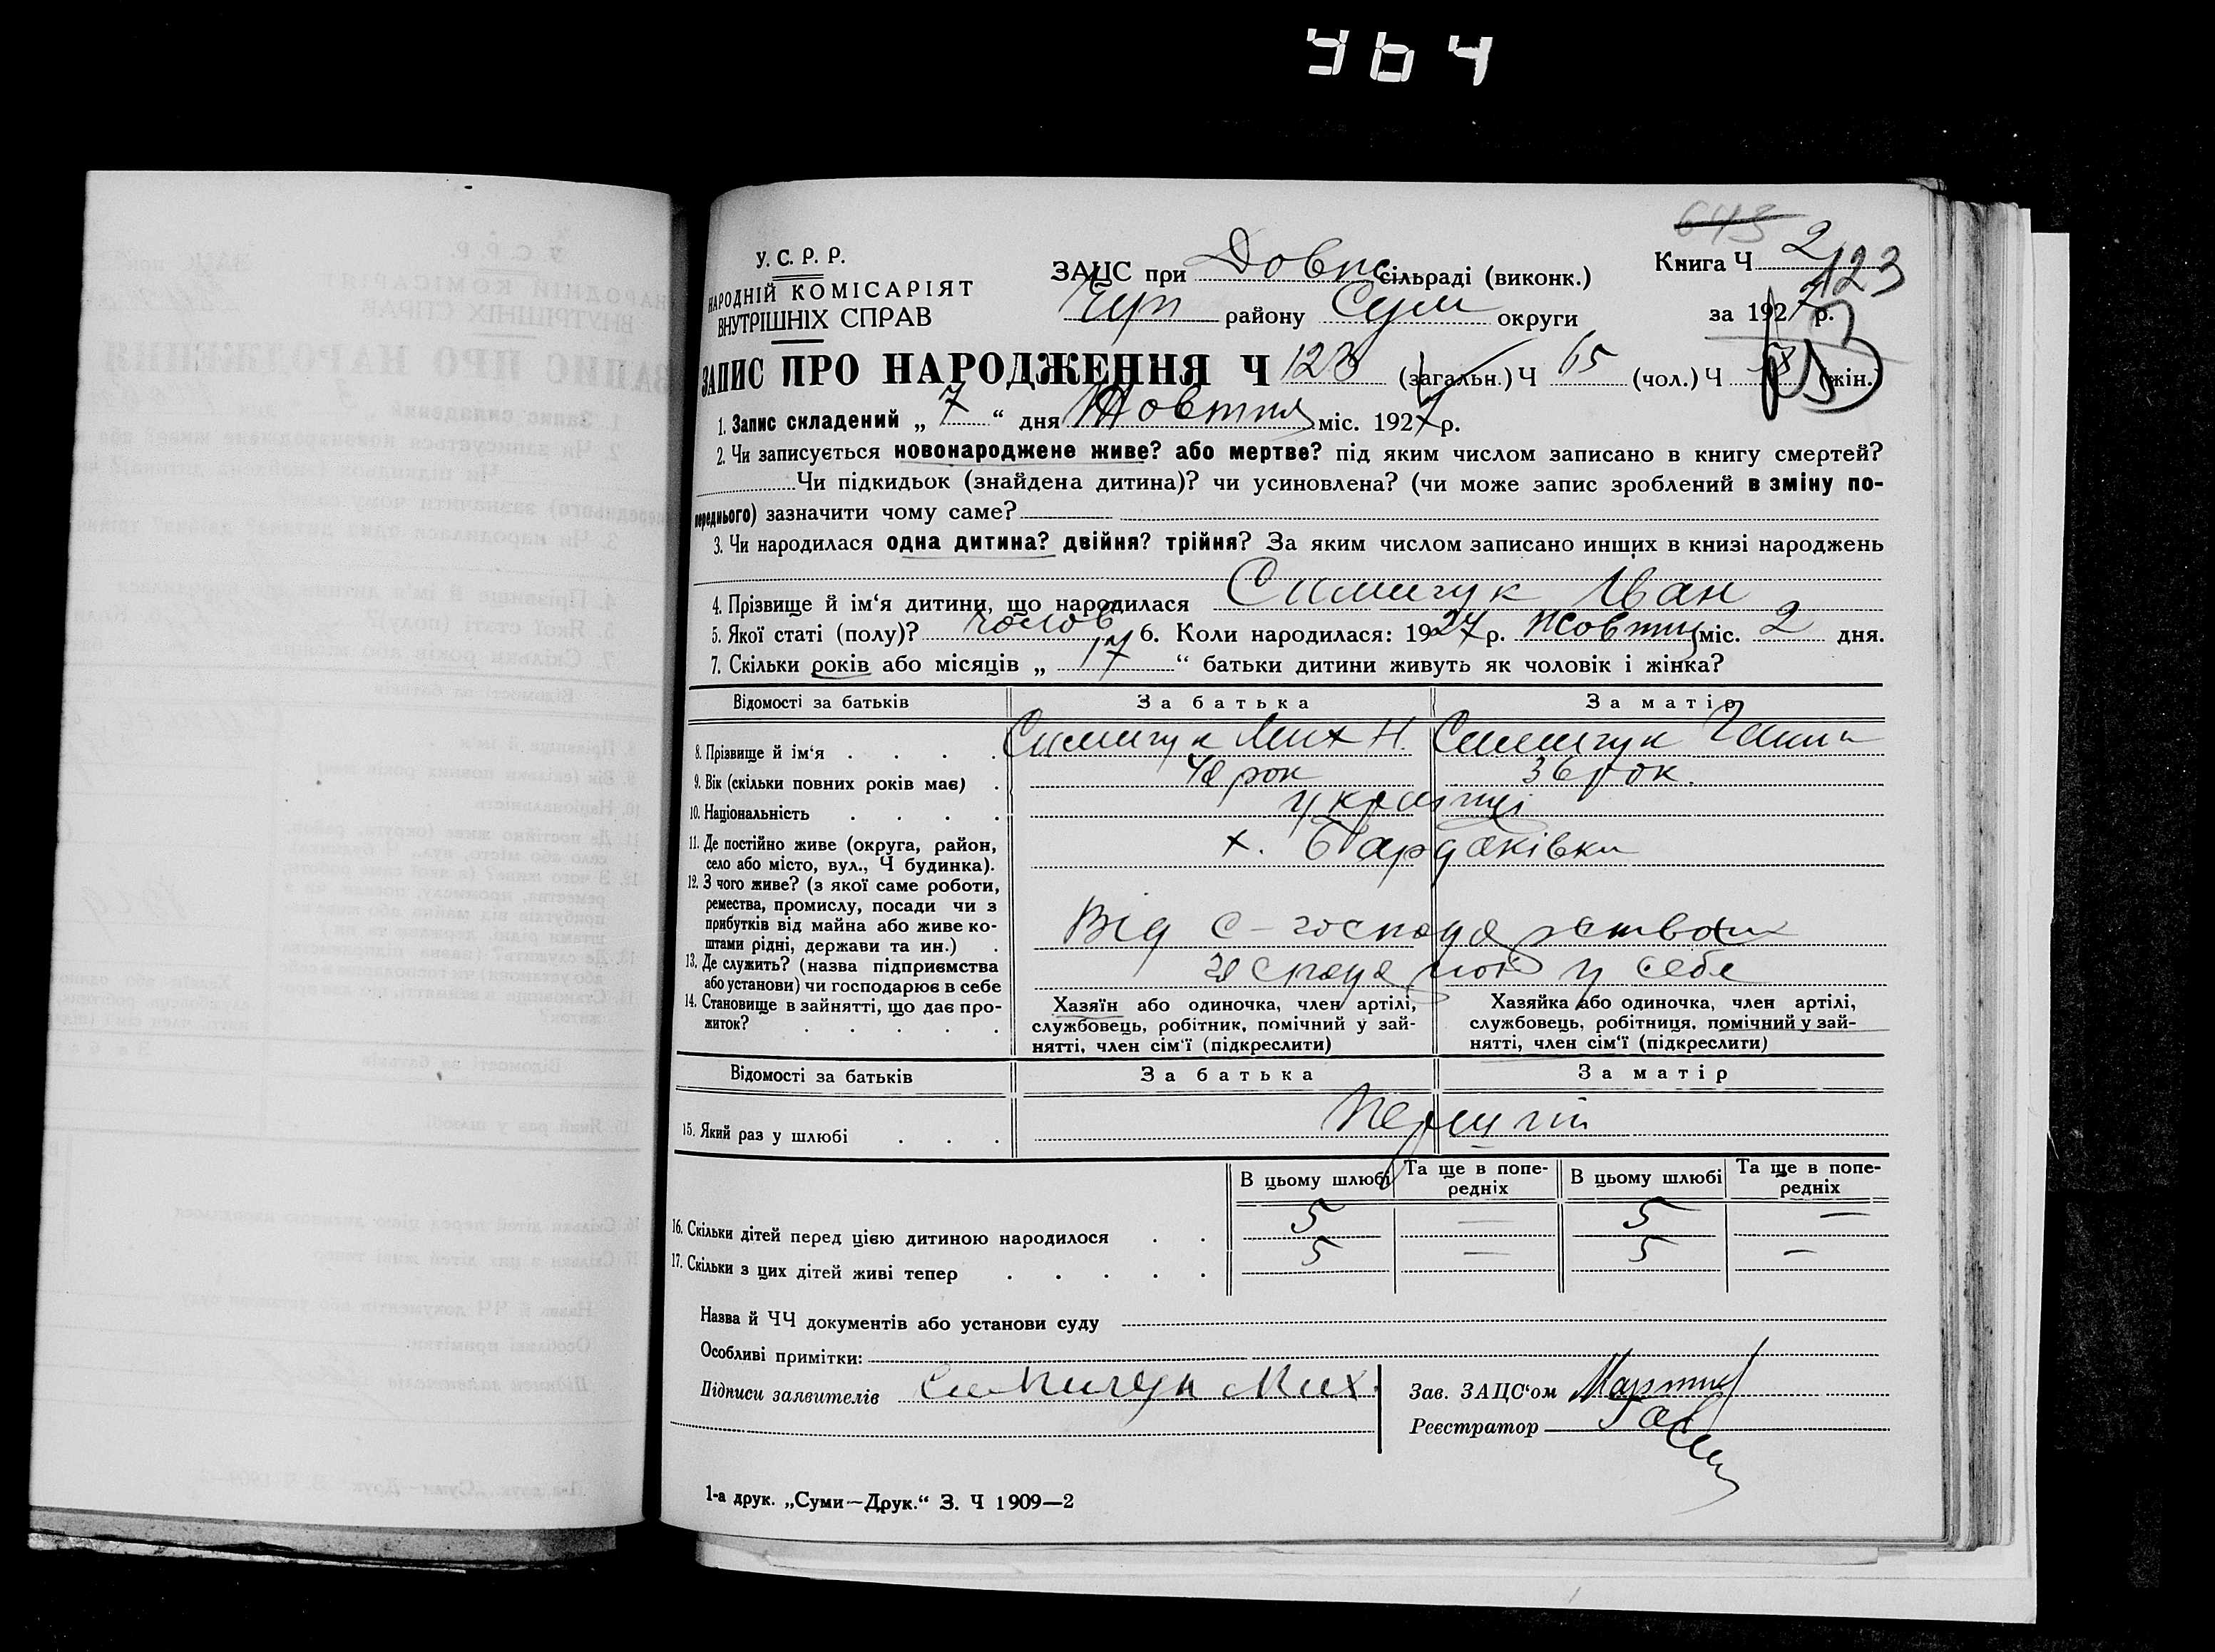 964
643
У. С. Р. Р.
НАРОДНІЙ КОМІСАРІЯТ
ВНУТРІШНІХ СПРАВ
ЗАЦС при Довг сільраді (виконк.)
Чуп району Сум округи
Книга Ч 2
123
за 1927 р.
ЗАПИС ПРО НАРОДЖЕННЯ Ч 123 (загальн.) Ч 65 (чол.) Ч 58 (жін.)
1. Запис складений „ 7 “ дня Жовтня міс. 1927 р.
2. Чи записується новонароджене живе? або мертве? під яким числом записано в книгу смертей?
Чи підкидьок (знайдена дитина)? чи усиновлена? (чи може запис зроблений в зміну по-
переднього) зазначити чому саме?
3. Чи народилася одна дитина? двійня? трійня? За яким числом записано инших в книзі народжень
4. Прізвище й ім‘я дитини, що народилася Симичук Іван
5. Якої статі (полу)? чолов 6. Коли народилася: 1927 р. Жовтня міс. 2 дня.
7. Скільки років або місяців „ 17 “ батьки дитини живуть як чоловік і жінка?
Відомості за батьків За батька За матір
8. Прізвище й ім‘я Симичук Мих Н. Симичук
9. Вік (скільки повних років має) рок 36 рок.
10. Національність українці
11. Де постійно живе (округа, район,
село або місто, вул., Ч будинка).
х. Бардаківка
12. З чого живе? (з якої саме роботи,
ремества, промислу, посади чи з
прибутків від майна або живе ко-
штами рідні, держави та ин.)
Від с-господарства
13. Де служить? (назва підприємства
або установи) чи господарює в себе
у себе
14. Становище в зайнятті, що дає про-
житок?
Хазяїн або одиночка, член артілі,
службовець, робітник, помічний у зай-
нятті, член сім‘ї (підкреслити)
Хазяйка або одиночка, член артілі,
службовець, робітниця, помічний у зай-
нятті, член сім‘ї (підкреслити)
Відомості за батьків За батька За матір
15. Який раз у шлюбі Перший
В цьому шлюбі Та ще в попе-
редніх В цьому шлюбі Та ще в попе-
редніх
16. Скільки дітей перед цією дитиною народилося 5 — 5 —
17. Скільки з цих дітей живі тепер 5 — 5 —
Назва й ЧЧ документів або установи суду
Особливі примітки:
Підписи заявителів Симичук Мих.
Зав. ЗАЦС‘ом
Реєстратор
1-а друк. „Суми—Друк.“ З. Ч 1909—2